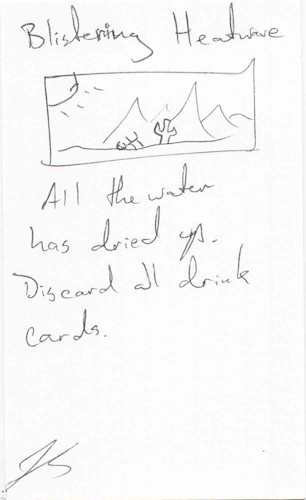 Blistering Heatwave
All the water
has dried up.
Discard all drink
cards.